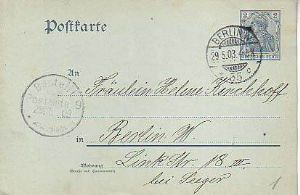 Postkarte
2 2
BERLIN
29.5.03.
An
Fräulein Helene Rankohoff
in
Berlin W
Link Str 18 III
bei Seeger
Wohnung
(Straße und Hausnummer)